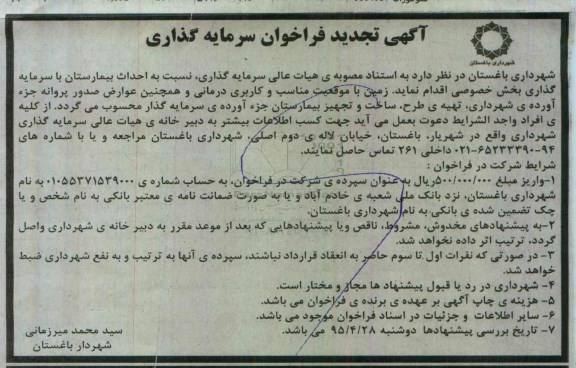 آگهی تجدید فراخوان سرمایه گذاری
شهرداری باغستان
شهرداری باغستان در نظر دارد به استناد مصوبه ی هیات عالی سرمایه گذاری، نسبت به احداث بیمارستان با سرمایه
گذاری بخش خصوصی اقدام نماید. زمین با موقعیت مناسب و کاربری درمانی و همچنین عوارض صدور پروانه جزء
آورده ی شهرداری، تهیه ی طرح، ساخت و تجهیز بیمارستان جزء آورده ی سرمایه گذار محسوب می گردد. از کلیه
ی افراد واجد الشرایط دعوت بعمل می آید جهت کسب اطلاعات بیشتر به دبیر خانه ی هیات عالی سرمایه گذاری
شهرداری واقع در شهریار، باغستان، خیابان لاله ی دوم اصلی، شهرداری باغستان مراجعه و یا با شماره های
۹۴-۶۵۲۳۳۳۹۰-۰۲۱ داخلی ۲۶۱ تماس حاصل نمایند.
شرایط شرکت در فراخوان :
۱-واریز مبلغ ۵۰۰/۰۰۰/۰۰۰ریال به عنوان سپرده ی شرکت در فراخوان، به حساب شماره ی ۰۱۰۵۵۳۷۱۵۳۹۰۰۰ به نام
شهرداری باغستان، نزد بانک ملی شعبه ی خادم آباد و یا به صورت ضمانت نامه ی معتبر بانکی به نام شخص و یا
چک تضمین شده ی بانکی به نام شهرداری باغستان.
۲-به پیشنهادهای مخدوش، مشروط، ناقص ویا پیشنهادهایی که بعد از موعد مقرر به دبیر خانه ی شهرداری واصل
گردد، ترتیب اثر داده نخواهد شد.
۳- در صورتی که نفرات اول تا سوم حاضر به انعقاد قرارداد نباشند، سپرده ی آنها به ترتیب و به نفع شهرداری ضبط
خواهد شد.
۴- شهرداری در رد یا قبول پیشنهاد ها مجاز و مختار است.
۵- هزینه ی چاپ آگهی بر عهده ی برنده ی فراخوان می باشد.
۶- سایر اطلاعات و جزئیات در اسناد فراخوان موجود می باشد.
۷- تاریخ بررسی پیشنهادها دوشنبه ۹۵/۴/۲۸ می باشد.
سید محمد میرزمانی
شهردار باغستان